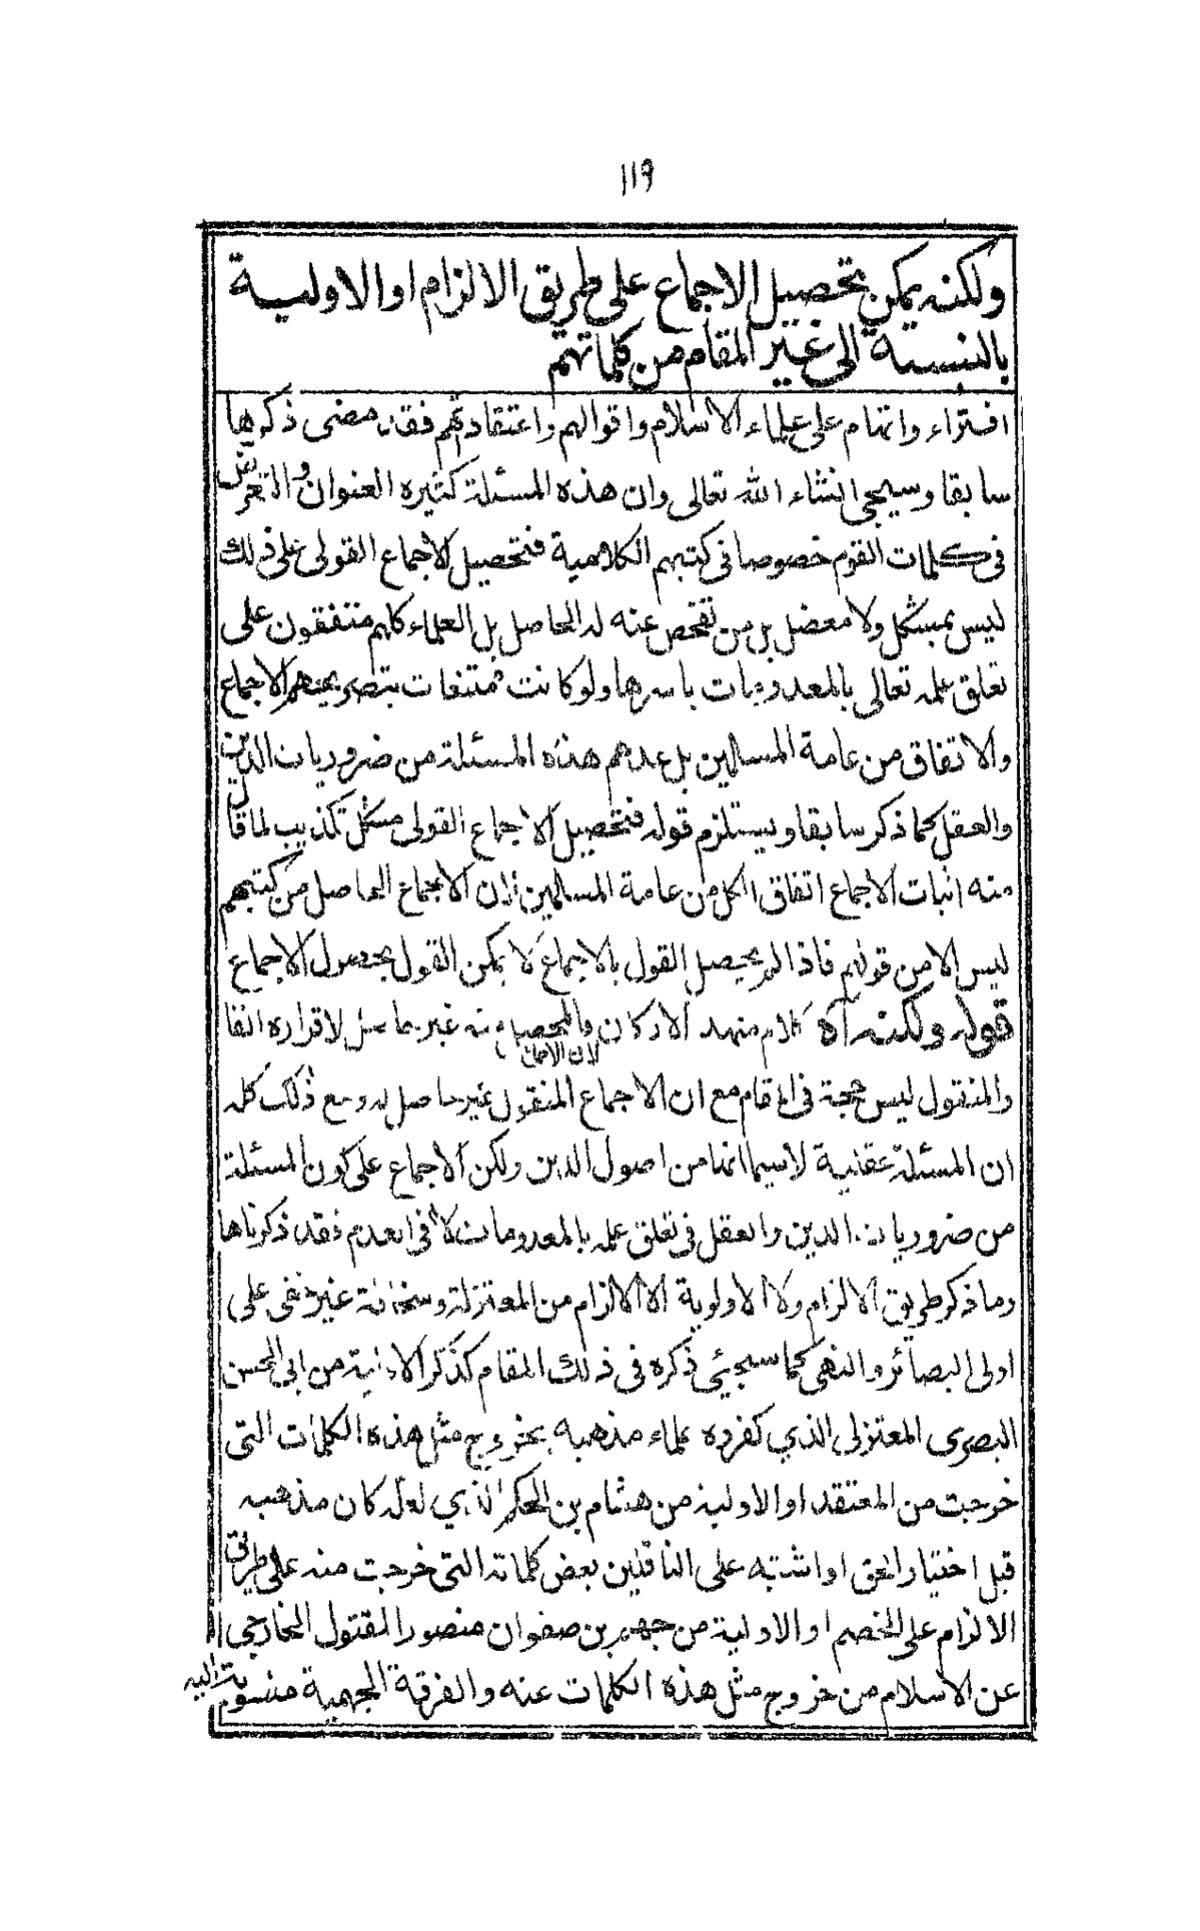 ١١٩
ولكنه يمكن تحصيل الاجماع على طريق الالزام او الاولية
بالنسبة الى غير المقام من كلماتهم
افتراء واتهام على علماء الاسلام واقوالهم واعتقاداتهم فقد مضى ذكرها
سابقا وسيجئ انشاء الله تعالى وان هذه المسئلة كثيرة العنوان والتعرض
فى كلمات القوم خصوصا فى كتبهم الكلامية فتحصيل الاجماع القولى على ذلك
ليس بمشكل ولا معضل بل من تفحص عنه له الحاصل بل العلماء كلهم متفقون على
تعلق علمه تعالى بالمعدومات باسرها ولو كانت ممتنعات بتصريحهم الاجماع
والاتفاق من عامة المسلمين بل عدهم هذه المسئلة من ضروريات الدين
والعقل كما ذكر سابقا ويستلزم قوله فتحصيل الاجماع القولى مشكل تكذيب لما قال
منه اثبات الاجماع اتفاق الكل من عامة المسلمين لان الاجماع الحاصل من كتبهم
ليس الا من قولهم فاذا لم يحصل القول بالاجماع لا يمكن القول بحصول الاجماع
قوله ولكنه آه كلام منهدم الاركان لان الاجماع المحصل منه غير حاصل لاقراره انفا
والمنقول ليس حجة فى المقام مع ان الاجماع المنقول غير حاصل له ومع ذلك كله
ان المسئلة عقلية لاسيما انها من اصول الدين ولكن الاجماع على كون المسئلة
من ضروريات الدين والعقل فى تعلق علمه بالمعدومات لا فى العدم فقد ذكرناها
وما ذكر طريق الالزام ولا الاولوية الا الالزام من المعتزلة وسخافته غير خفى على
اولى البصائر والنهى كما سيجيئ ذكره فى ذلك المقام كذكر من ابى الحسن
البصرى المعتزلى الذي كفروه علماء مذهبه بخروج مثل هذه الكلمات التى
خرجت من المعتقد او الاولية من هشام بن الحكم الذي لعله كان مذهبه
قبل اختيار الحق او اشتبه على الناقلين بعض كلماته التى خرجت منه على طريق
الالزام على الخصم او الاولية من جهم بن صفوان منصور المقتول الخارجي
عن الاسلام من خروج مثل هذه الكلمات عنه والفرقة الجهمية منسوبة اليه